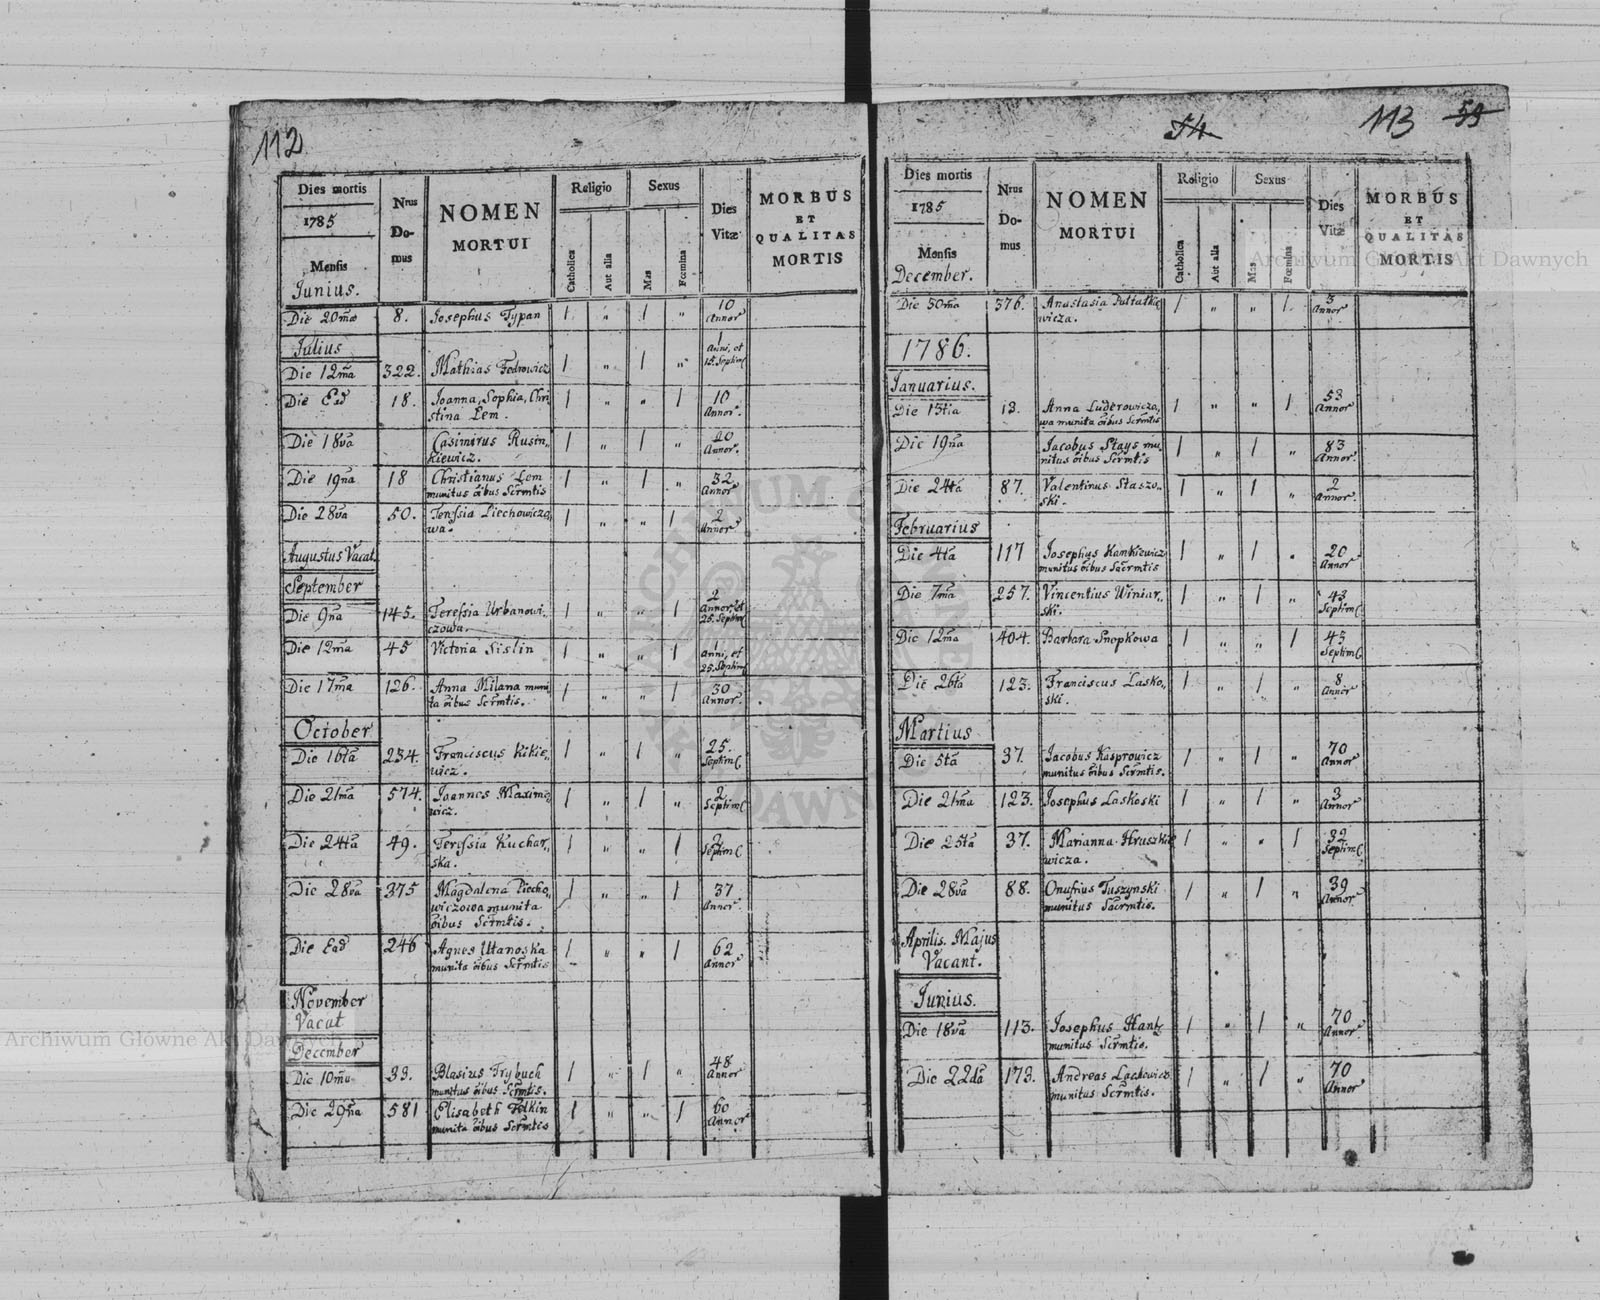 112
Dies mortis
1785
Mensis
Junius.
Nrus
Do-
mus
NOMEN
MORTUI
Religio
Catholica
Aut alia
Sexus
Mas
Fœmina
Dies
Vitæ
MORBUS
ET
QUALITAS
MORTIS
Die 20ma 8. Josephus Typan / „ / „ 10 Annor
Julius
Die 12ma 322. Mathias Fedrowicz / „ / „ 1 Anni, et 15. Septim
Die Ead 18. Joanna, Sophia, Chri
stina Lem. / „ „ / 10 Annor.
Die 18va Casimirus Rusin„
kiewicz. / „ / „ 20 Annor.
Die 19na 18 Christianus Lem
munitus oibus Scrmtis / „ / „ 32 Annor
Die 28va 50. Teressia Piechowiczo„
wa. / „ „ / 2 Annor
Augustus Vacat
September
Die 9na 145. Teressia Urbanowi„
czowa. / „ „ / 2 Annor, et 25. Septim
Die 12ma 45 Victoria Sislin / „ „ / 1 Anni, et 25. Septim
Die 17ma 126. Anna Milana muni
ta oibus Scrmtis. / „ „ / 30 Annor.
October
Die 16ta 234. Franciscus Kikie„
wicz. / „ / „ 25. Septim
Die 21ma 574. Joannes Maximo
wicz. / „ / „ 2 Septim
Die 24ta 49. Teressia Kuchar„
ska. / „ „ / 2 Septim
Die 28va 375 Magdalena Piecho„
wiczowa munita
oibus Scrmtis. / „ „ / 37 Annor.
Die Ead 246 Agnes Utanoska
munita oibus Scrmtis / „ „ / 62 Annor
November
Vacat
December
Die 10ma 33. Blasius Trybuch
munitus oibus Scrmtis. / „ / „ 48 Annor
Die 29na 581 Elisabeth Felkin
munita oibus Scrmtis / „ „ / 60 Annor
54
113
59
Dies mortis
1785
Mensis
December.
Nrus
Do-
mus
NOMEN
MORTUI
Religio
Catholica
Aut alia
Sexus
Mas
Fœmina
Dies
Vitæ
MORBUS
ET
QUALITAS
MORTIS
Die 30ma 376. Anastasia Pultatkie
wicza. / „ „ / 3 Annor
1786.
Januarius.
Die 13tia 13. Anna Luderowiczo„
wa munita oibus Scrmtis / „ „ / 53 Annor
Die 19na Jacobus Stays mu
nitus oibus Scrmtis / „ / „ 83 Annor.
Die 24ta 87. Valentinus Staszo„
ski. / „ / „ 2 Annor
Februarius
Die 4ta 117 Josephus Kamkiewicz
munitus oibus Sacrmtis / „ / „ 20 Annor
Die 7ma 257. Vincentius Winiar„
ski. / „ / „ 43 Septim
Die 12ma 404. Barbara Snopkowa / „ „ / 45 Septim
Die 26ta 123. Franciscus Lasko„
ski. / „ / „ 8 Annor
Martius
Die 5ta 37. Jacobus Kasprowicz
munitus oibus Scrmtis. / „ / „ 70 Annor
Die 21ma 123. Josephus Laskoski / „ / „ 3 Annor
Die 25ta 37. Marianna Hruszkie
wicza. / „ „ / 32 Septim
Die 28va 88. Onufrius Tuszynski
munitus Sacrmtis. / „ / „ 39 Annor
Aprilis. Majus
Vacant.
Junius.
Die 18va 113. Josephus Hantz
munitus Scrmtis. / „ / „ 70 Annor
Die 22da 173. Andreas Lackewicz
munitus Scrmtis. / „ / „ 70 Annor
Archiwum Główne Akt Dawnych
Archiwum Główne Akt Dawnych
ARCHIWUM GŁÓWNE AKT DAWNYCH